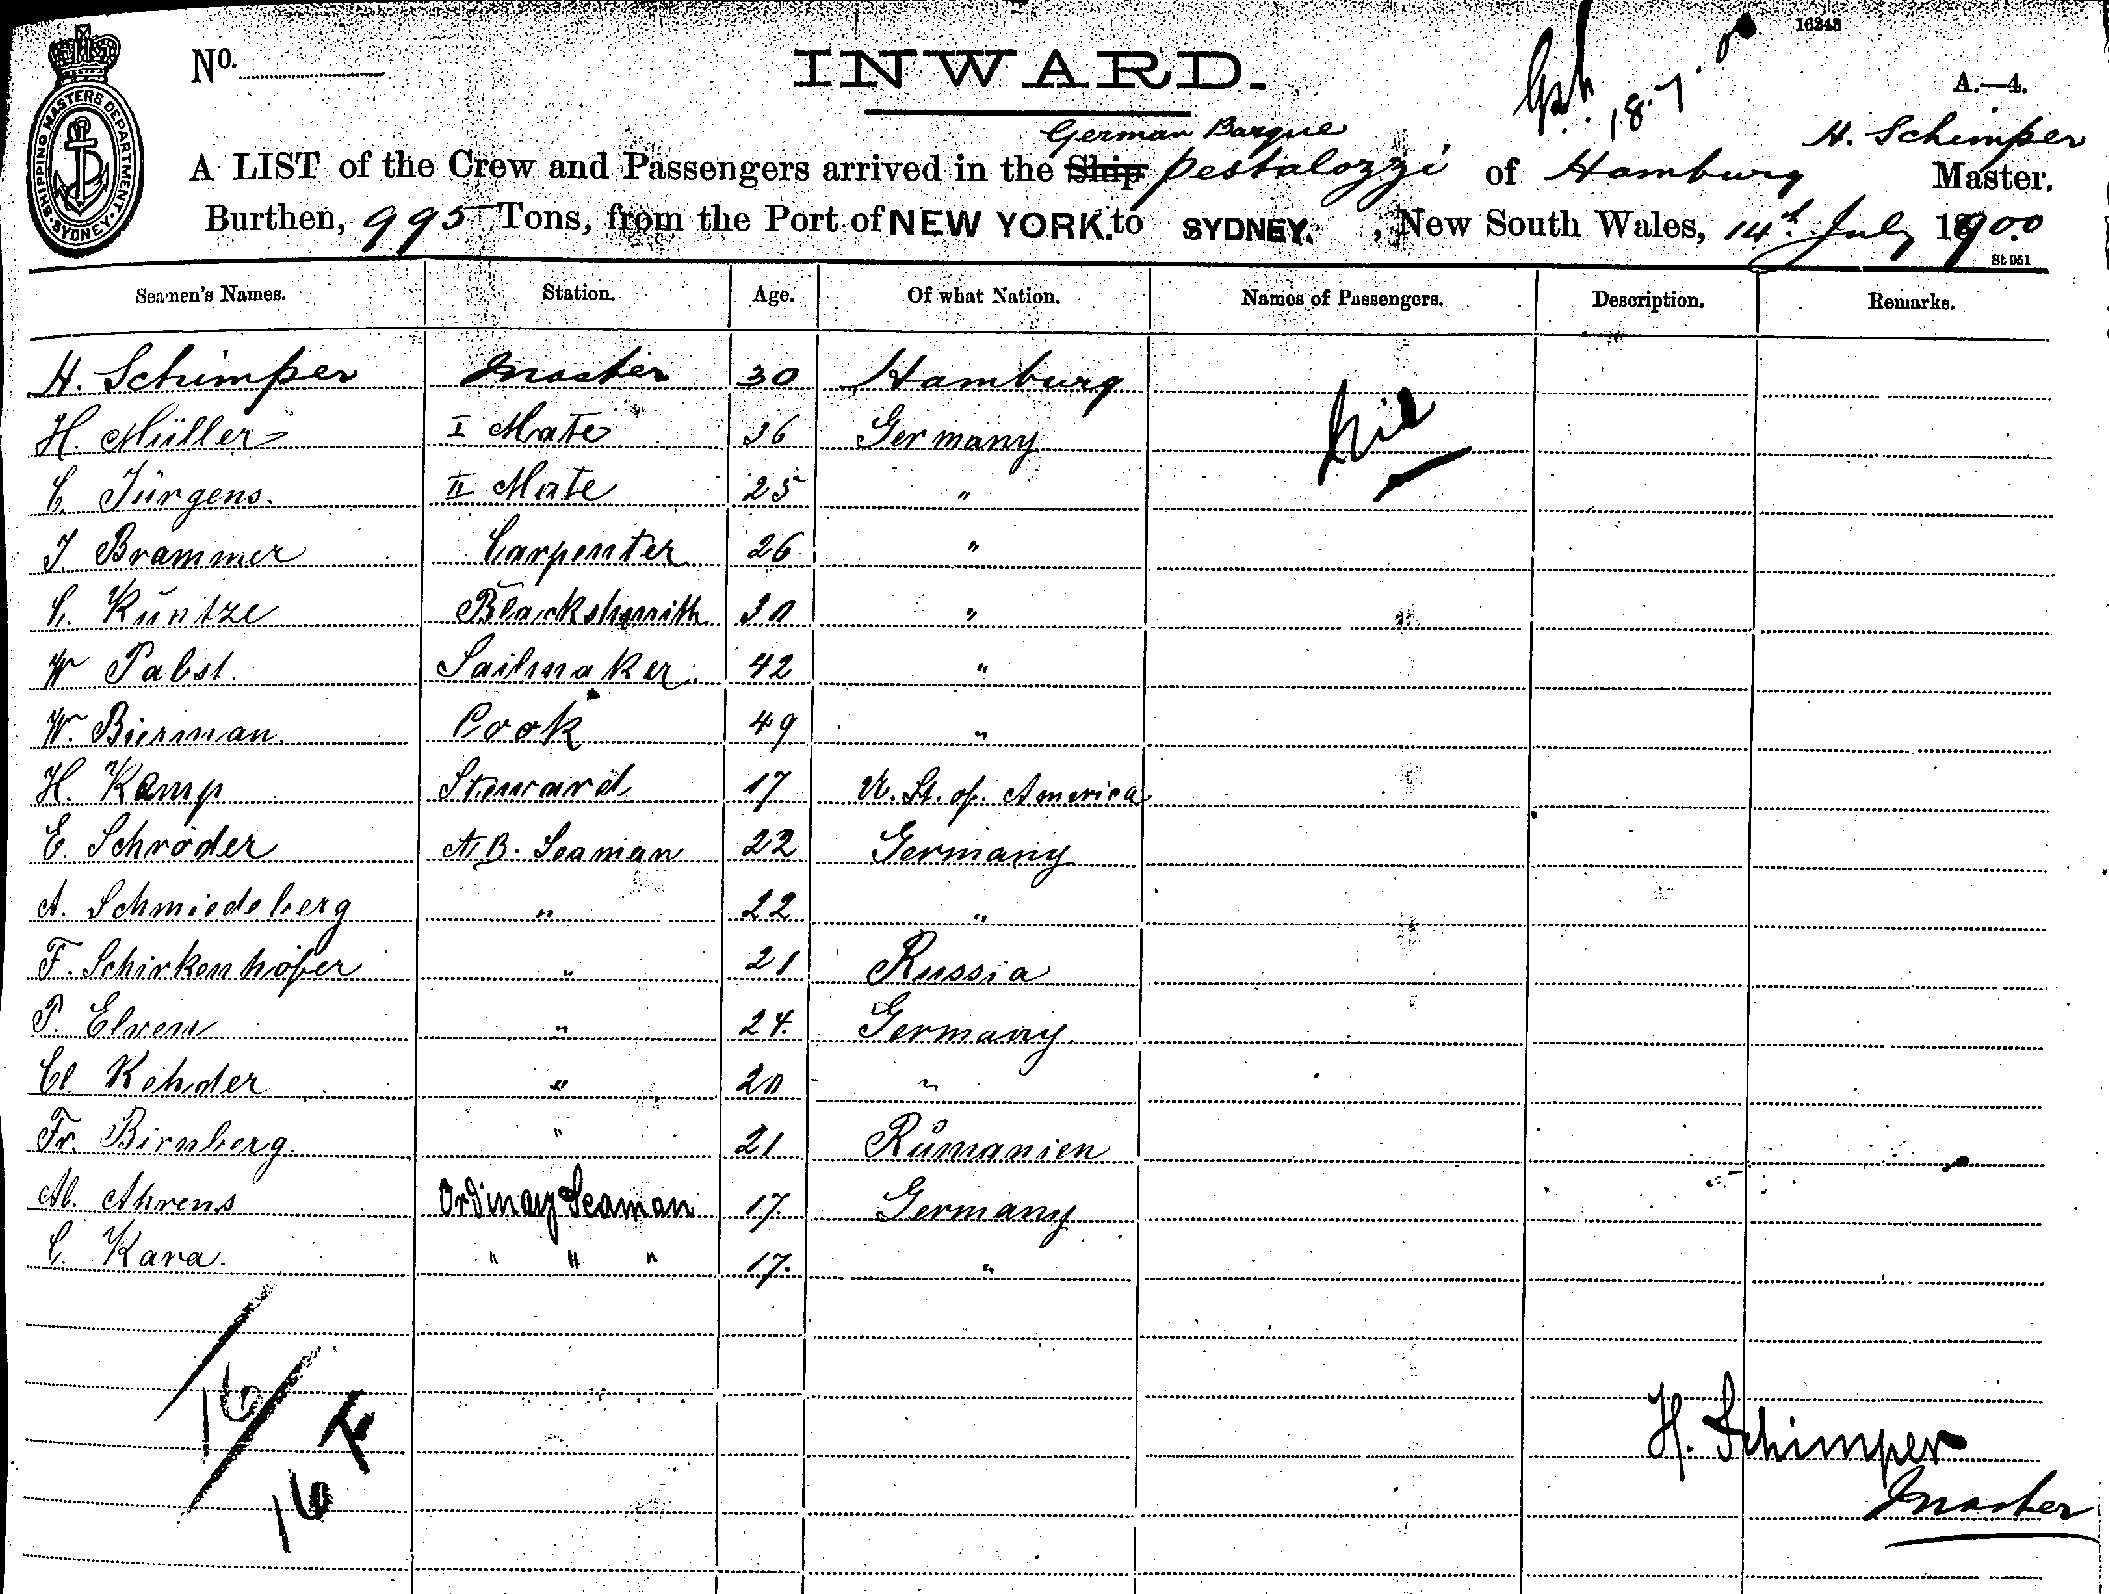 16248
No.
INWARD.
18.7.00
A.—4.
SHIPPING MASTERS DEPARTMENT. SYDNEY.
German Barque
H. Schimper
A LIST of the Crew and Passengers arrived in the Ship Pestalozzi of Hamburg Master.
Burthen, 995 Tons, from the Port of NEW YORK. to SYDNEY. , New South Wales, 14th July 1900
St 051
Seamen's Names. Station. Age. Of what Nation. Names of Passengers. Description. Remarks.
H. Schimper Master 30 Hamburg
H. Müller I Mate 36 Germany Nil
C. Jürgens. II Mate 25 "
J Brammer Carpenter 26 "
C. Küntze Blackshmith 30 "
W Pabst. Sailmaker. 42 "
W. Bierman. Cook 49 "
H. Kamp Steward 17 U. St. of America
E. Schröder A.B. Seaman 22 Germany
A. Schmiedeberg " 22 "
F. Schirkenhöfer " 21 Russia
P. Elven " 24. Germany
Cl. Rehder " 20 "
Fr. Birnberg. " 21 Rumanien
Al. Ahrens Ordinay Seaman 17. Germany
C. Kara. " " " 17. "
16
16
H. Schimper
Master